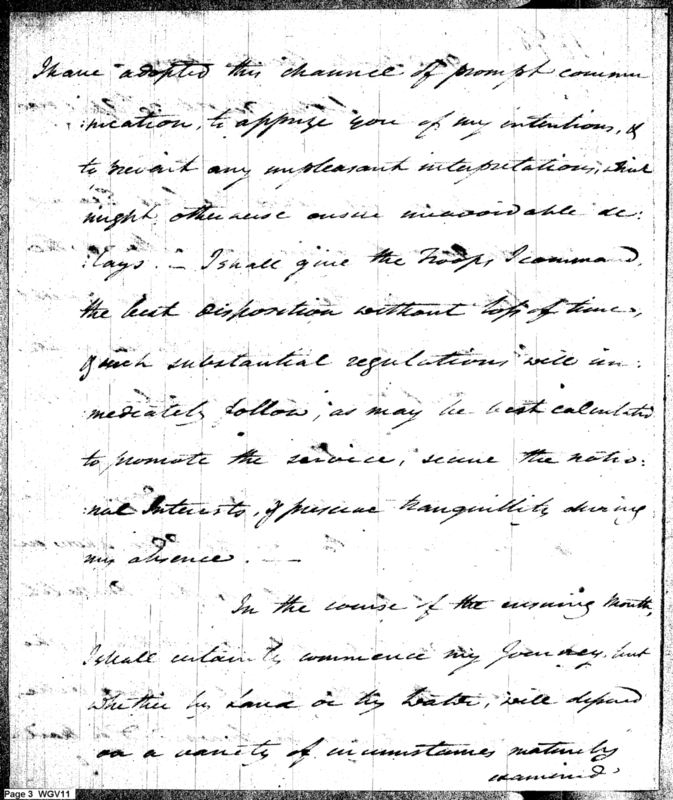 I have adopted this channel of prompt commu
:nication, to apprize you of my intentions, &
to prevent any unpleasant interpretations, which
might otherwise ensue unavoidable de:
:lays. — I shall give the Troops I command,
the best disposition without loss of time,
& such substantial regulations will im:
mediately follow, as may be best calculated
to promote the service, secure the natio:
nal Interests, & preserve tranquillity during
my absence. —
In the course of the ensuing Month,
I shall certainly commence my Journey, but
whether by Land or by Water, will depend
on a variety of circumstances maturely
examined
Page 3 WGV11